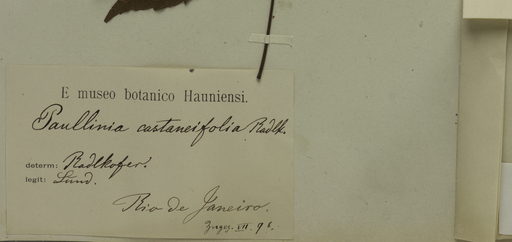 E museo botanico Hauniensi.
Paullinia castaneifolia Radlk.
determ: Radlkofer.
legit: Lund.
Rio de Janeiro.
VII. 96.